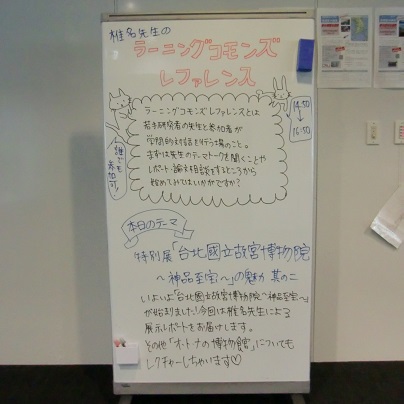 椎名先生の
ラーニングコモンズ
レファレンス
14:50
↓
16:50
誰でも
参加可!
ラーニングコモンズレファレンスとは
若手研究者の先生と参加者が
学問的対話を行う場のこと。
まずは先生のテーマトークを聞くことや
レポート・論文相談をするところから
始めてみてはいかがですか?
本日のテーマ
特別展「台北國立故宮博物院
〜神品至宝〜」の魅力 其の二
いよいよ「台北國立故宮博物院〜神品至宝〜」
が始まりました!今回は椎名先生による
展示レポートをお届けします。
その他「オ・ト・ナの博物館」についても
レクチャーしちゃいます♡